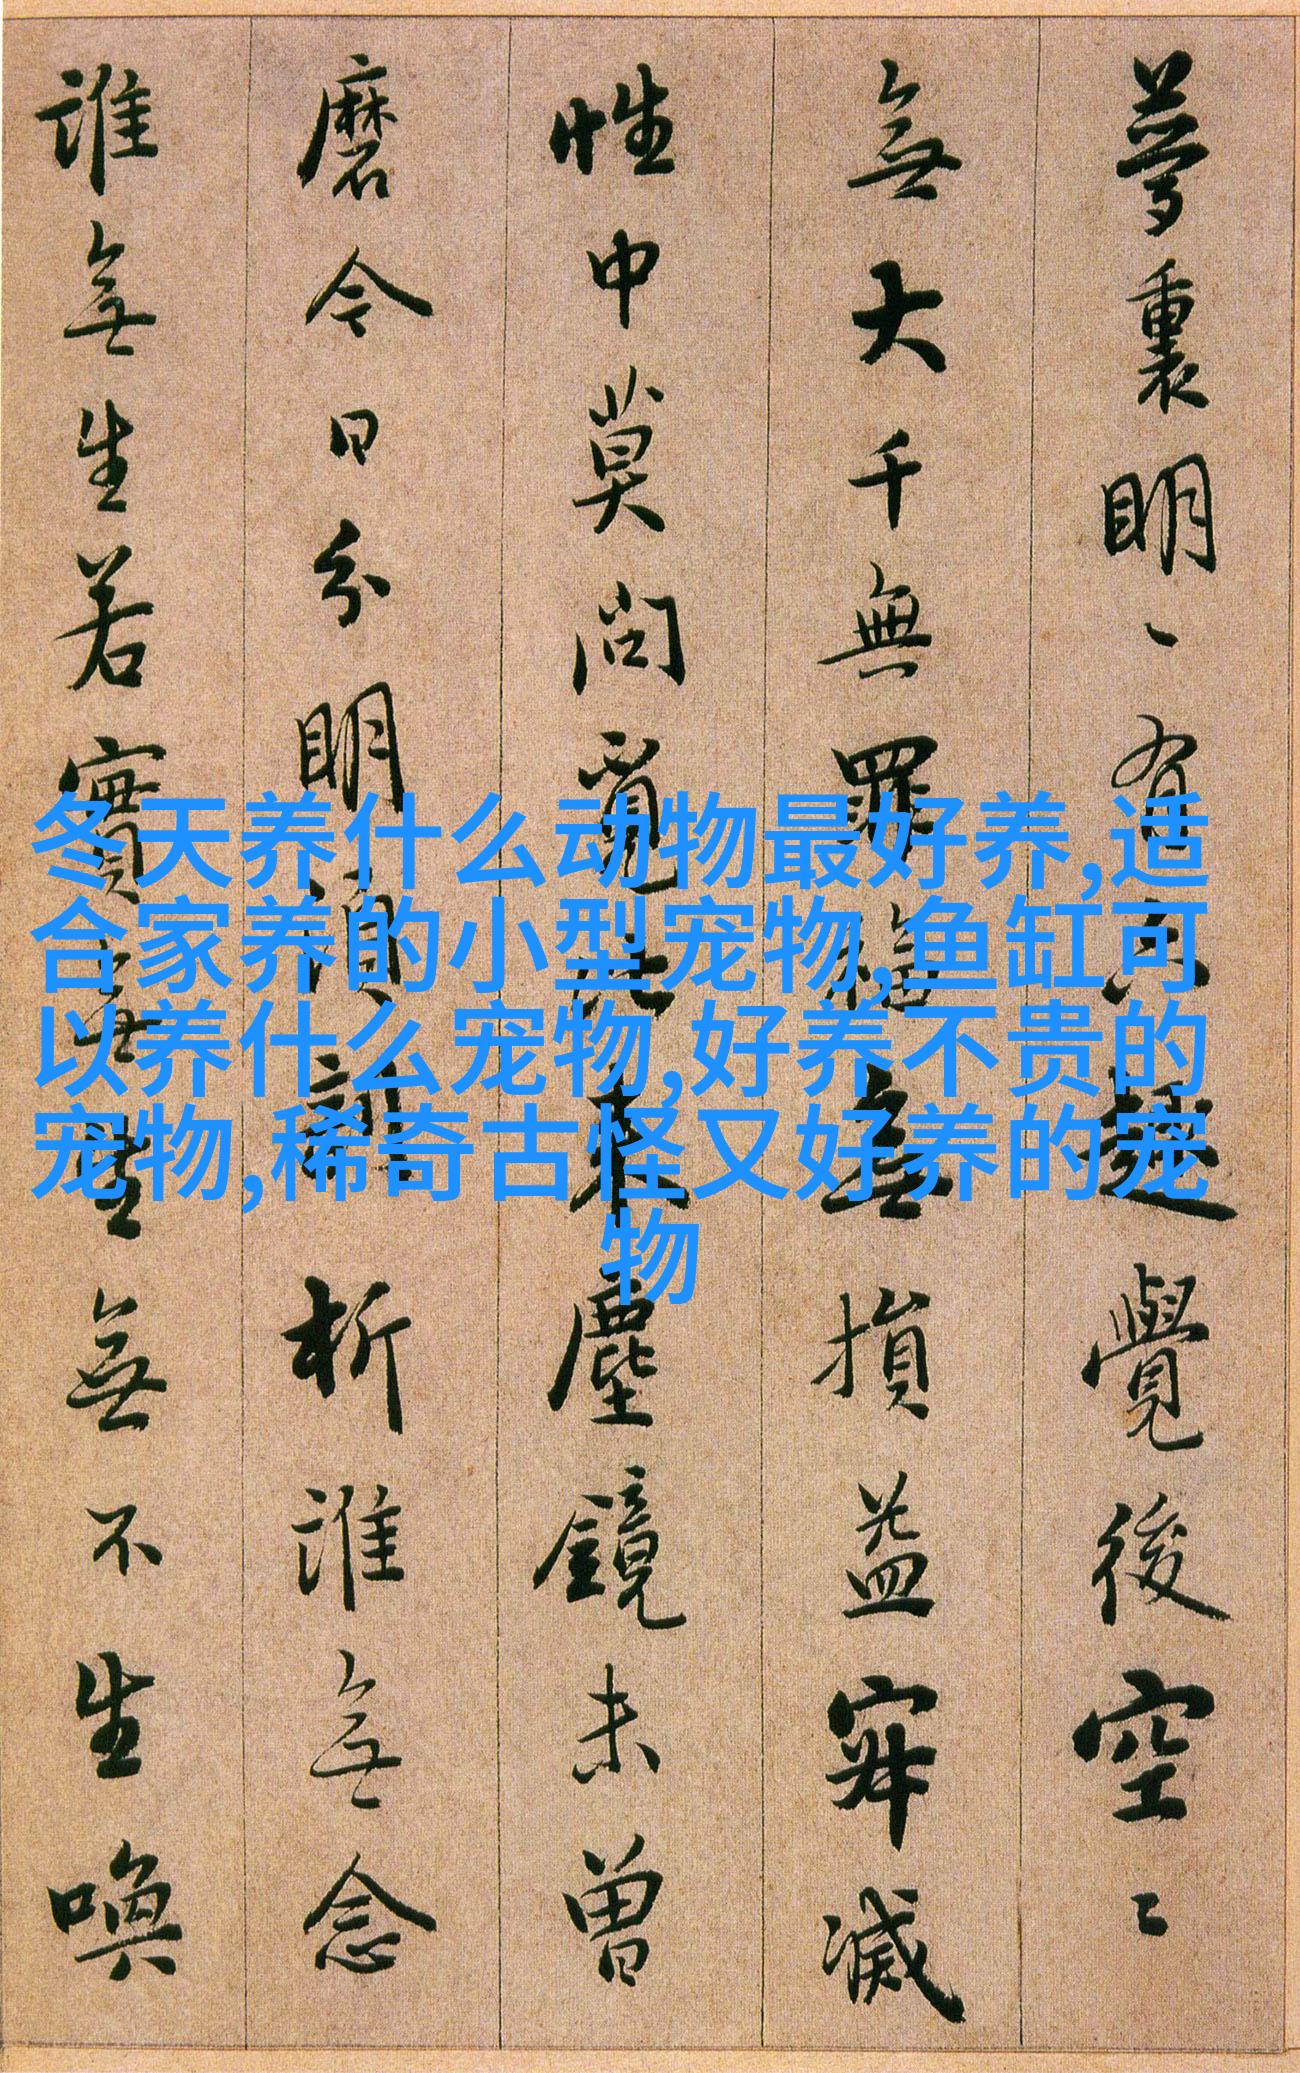 夢裏明〻有六趣覺後空〻
無大千無罪福無損益寂滅
性中莫問覓比来塵鏡未曾
磨今日分明須剖析誰無念
誰無生若實無生無不生喚
冬天养什么动物最好养,适
合家养的小型宠物,鱼缸可
以养什么宠物,好养不贵的
宠物,稀奇古怪又好养的宠
物